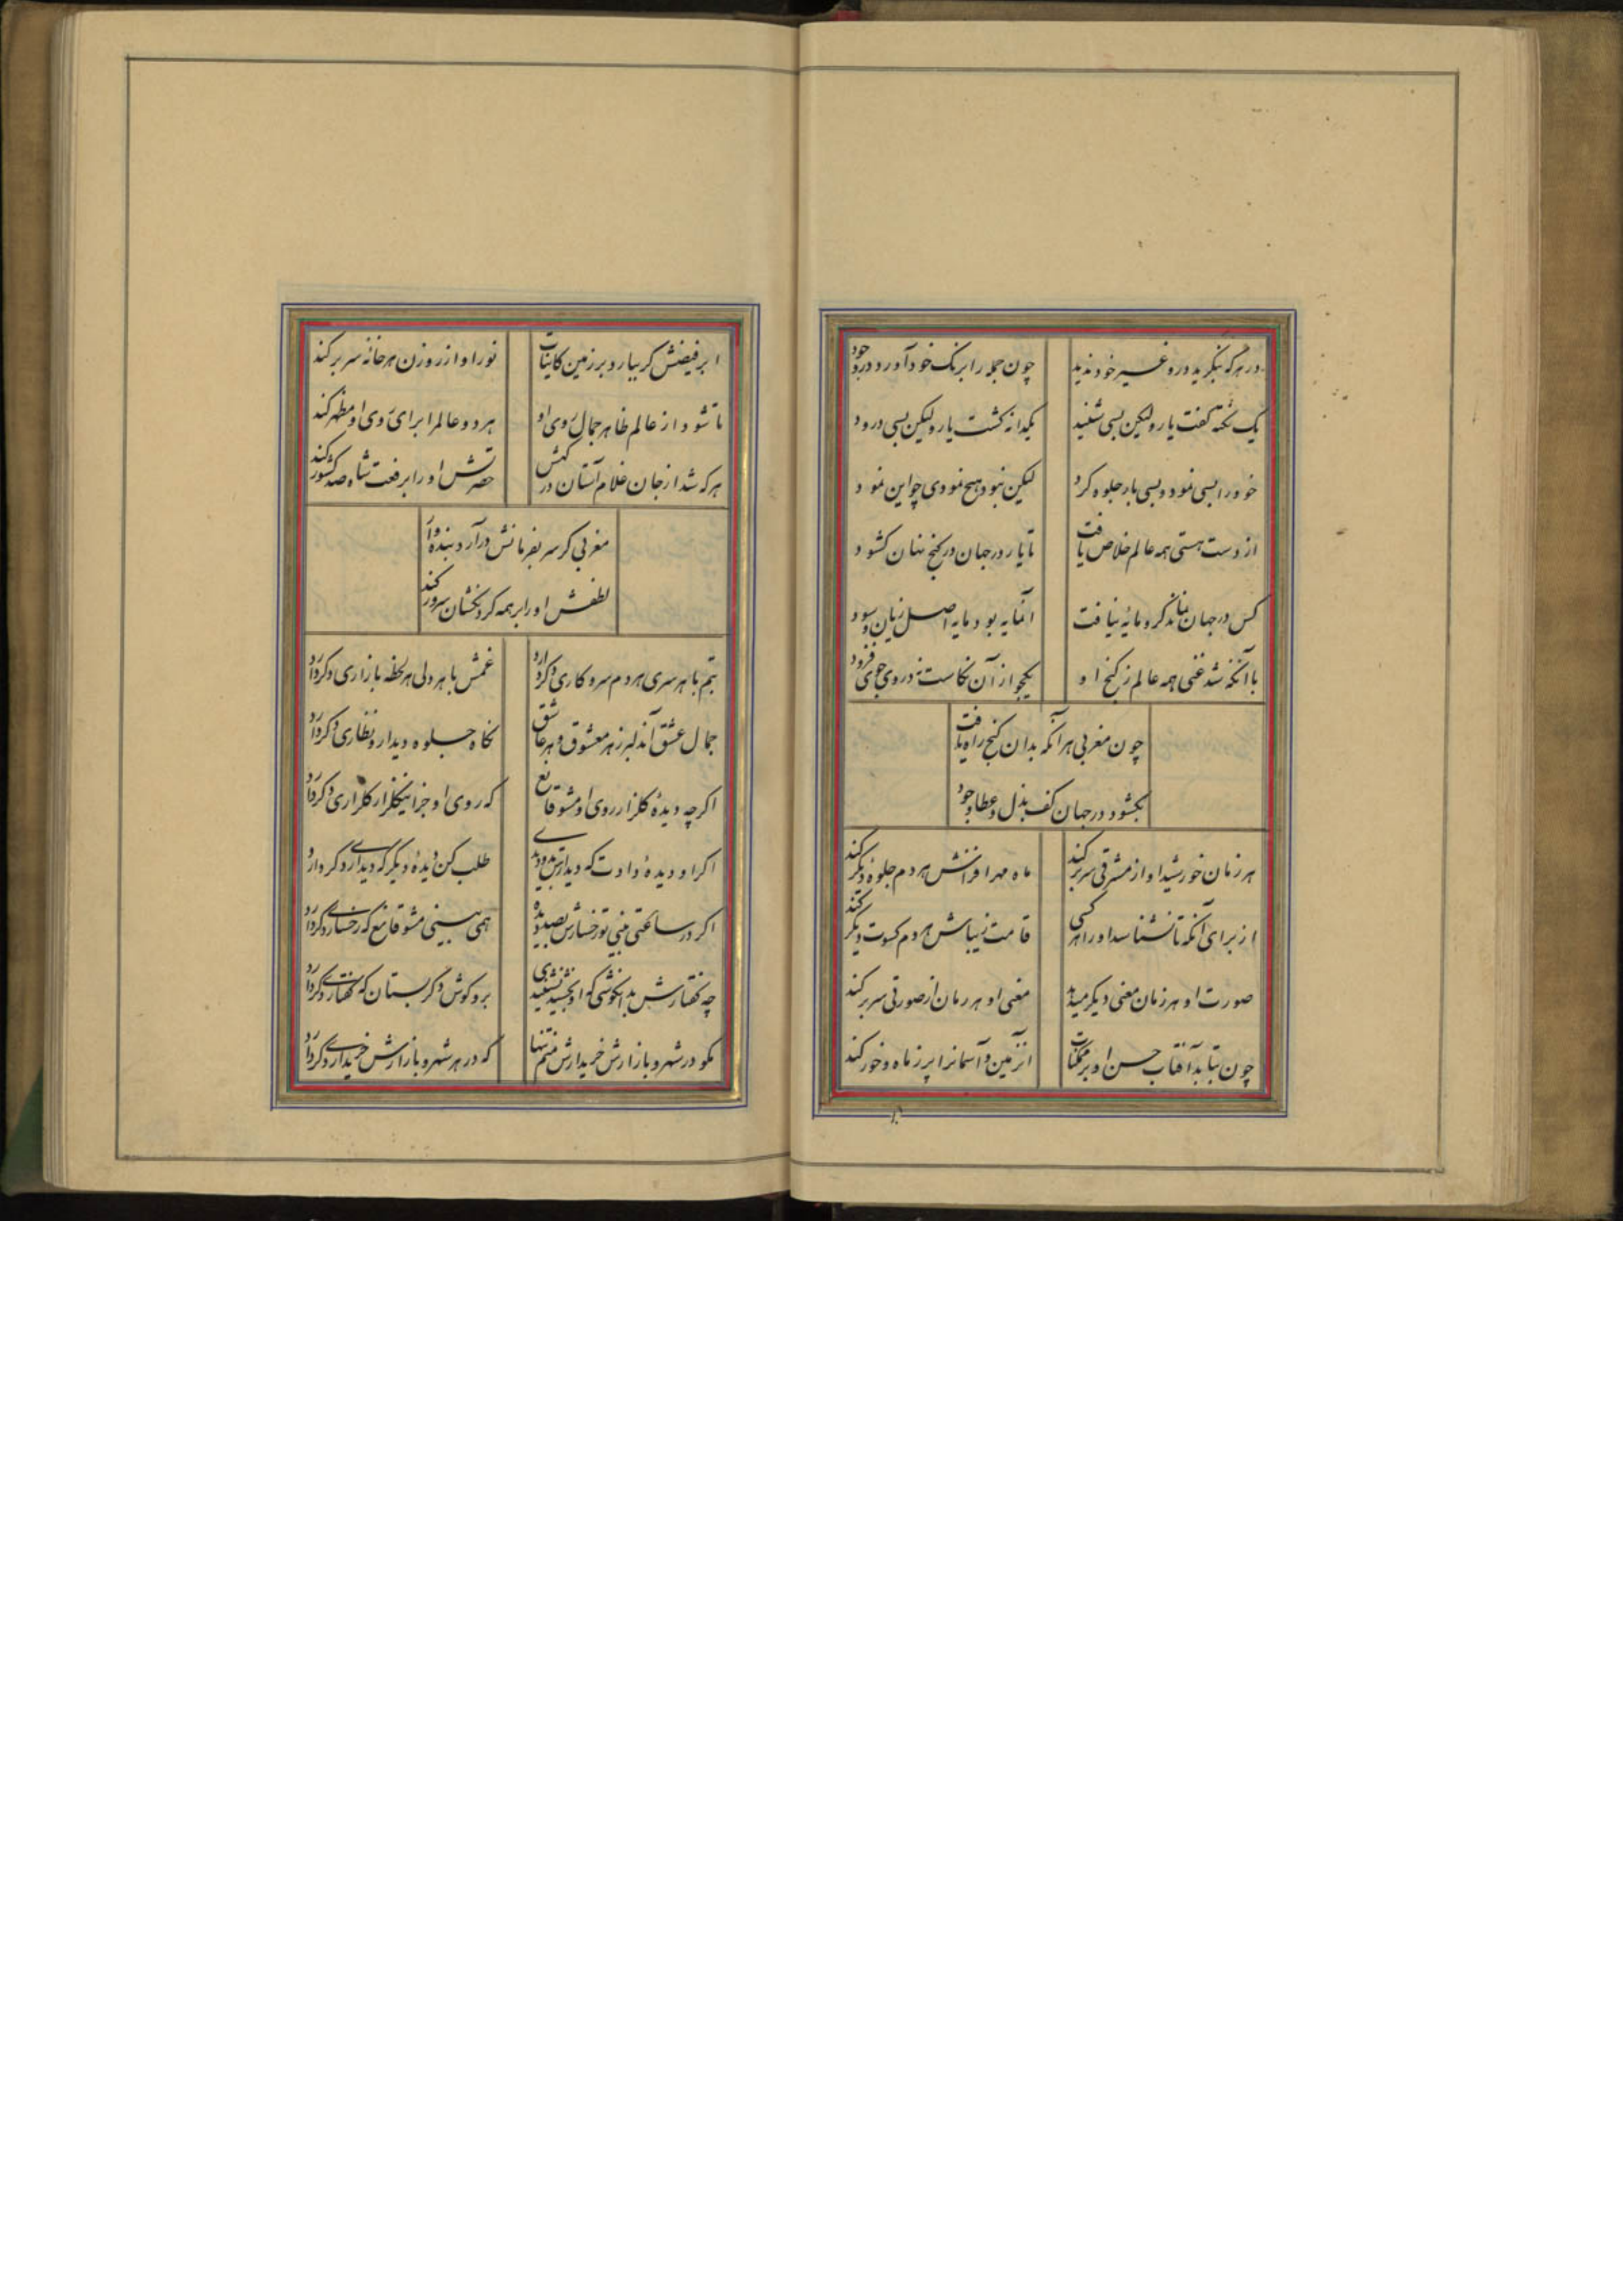 در هرکه بنگرید درو غیر خود ندید
چون جمله را برنک خود آورد در وجود
یک نکته کفت یار و لیکن بسی شنید
یکدانه کشت یار و لیکن بسی درود
خود را بسی نمود و بسی بار جلوه کرد
لیکن نبود هیچ نمودی چو این نمود
از دست هستی همه عالم خلاص یافت
تا یار در جهان در کنج نهان کشود
کس در جهان نماند کزو مایهٔ نیافت
آنمایه بود مایه اصل زیان و سود
با آنکه شد غنی همه عالم ز کنج او
یکجو از آن نکاست نه در وی جوی فزود
چون مغربی هر آنکه بدان کنج راه یافت
بکشود در جهان کف بذل و عطا و جود
هر زمان خورشید او از مشرقی سر برکند
ماه مهر افزانش هر دم جلوهٔ دیکر کند
از برای آنکه تا نشناسد او را هر کسی
قامت زیباش هر دم کسوت دیکر کند
صورت او هر زمان معنی دیکر میدهد
معنی او هر زمان از صورتی سر برکند
چون بتابد آفتاب حسن او بر ممکنات
از زمین و آسمانرا پر ز ماه و خور کند
ابر فیضش کر ببارد بر زمین کاینات
نور او از روزن هر خانه سر برکند
تا شود از عالم ظاهر جمال روی او
هر دو عالم را برای روی او مظهر کند
هرکه شد از جان غلام آستان درکهش
حضرتش او را برفعت شاه صد کشور کند
مغربی کر سر بفرمانش درآرد بنده وار
لطفش او را بر همه کردنکشان سرور کند
بتم با هر سری هر دم سر و کاری دکر دارد
غمش با هر دلی هر لحظه بازاری دکر دارد
جمال عشق آن دلبر ز هر معشوق و هر عاشق
نکاه جلوه دیدار و نظاری دکر دارد
اکرچه دیدهٔ کلزار روی او مشو قانع
که روی او جز اینکلزار کلزاری دکر دارد
اکر او دیدهٔ دادت که دیدارش بدو دیدی
طلب کن دیدهٔ دیکر که دیداری دکر دارد
اکر در ساعتی بینی تو رخسارش بصد دیده
همی بینی مشو قانع که رخساری دکر دارد
چه کفتارش بدانکوشی که او بخشید بشنیدی
برو کوش دکر بستان که کفتاری دکر دارد
مکو در شهر و بازارش خریدارش منم تنها
که در هر شهر و بازارش خریداری دکر دارد